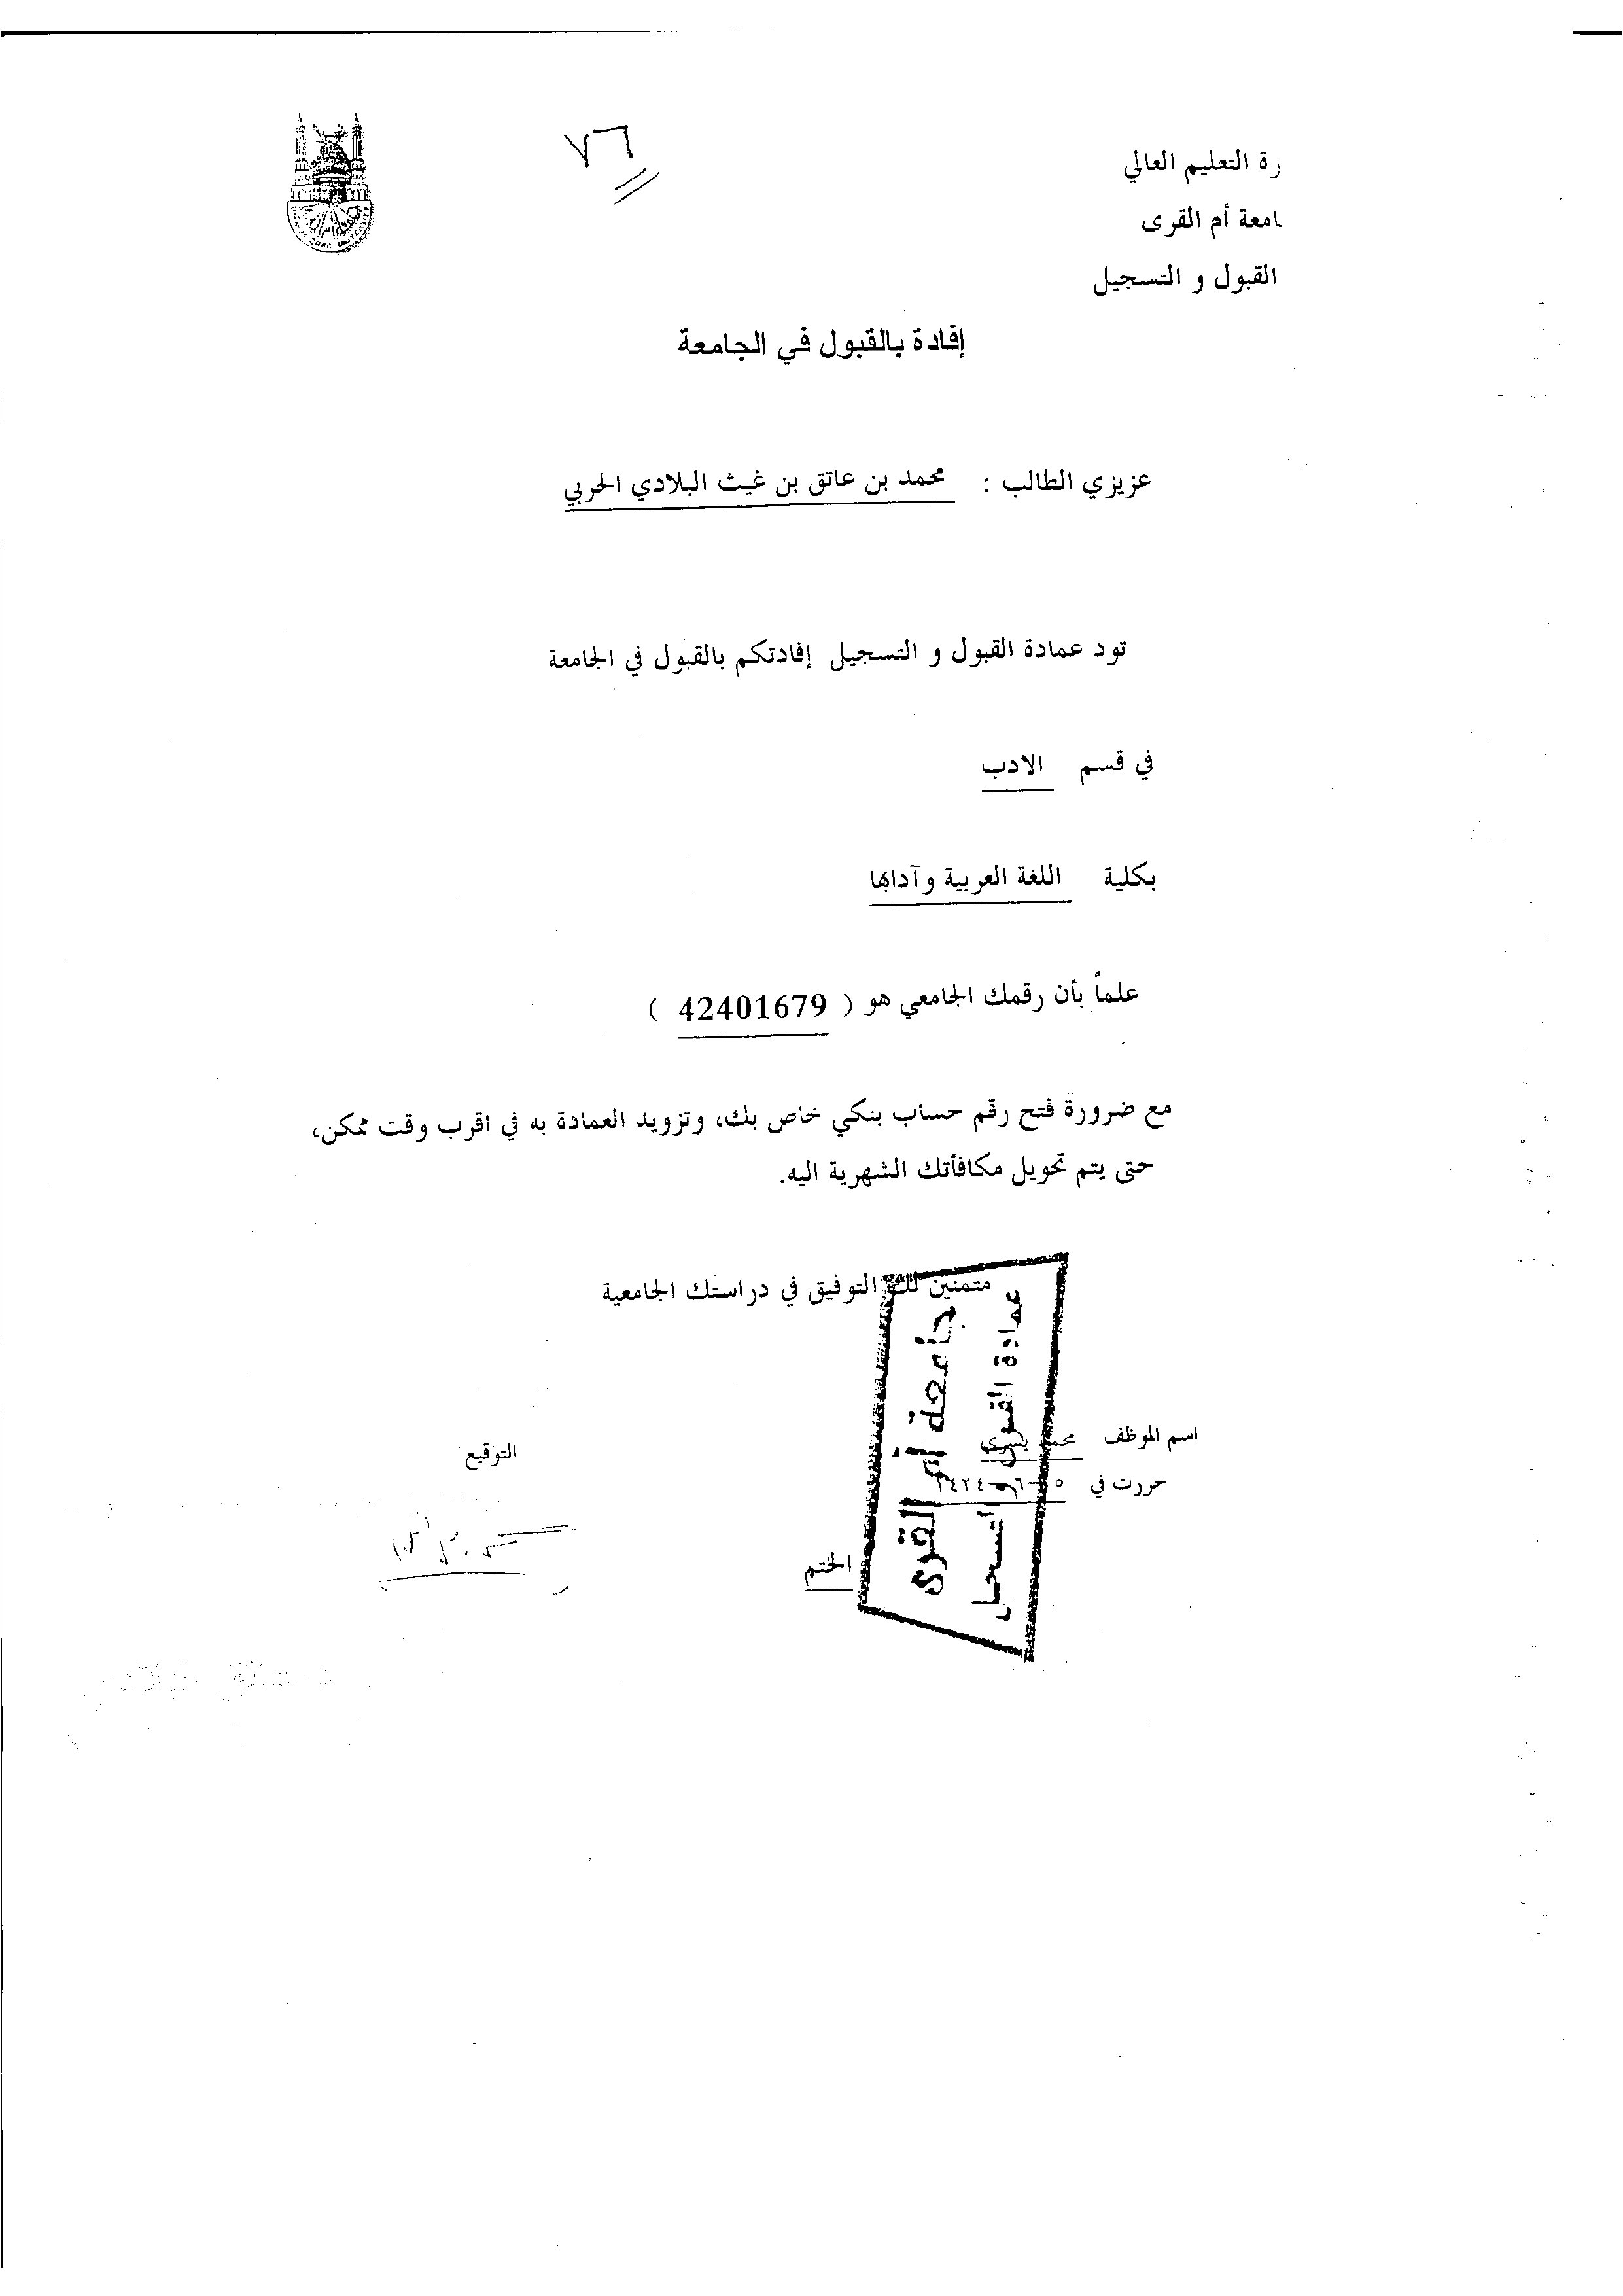 ٧٦
رة التعليم العالي
امعة أم القرى
القبول و التسجيل
إفادة بالقبول في الجامعة
عزيزي الطالب : محمد بن عاتق بن غيث البلادي الحربي
تود عمادة القبول و التسجيل إفادتكم بالقبول في الجامعة
في قسم الادب
بكلية اللغة العربية وآدابها
علماً بأن رقمك الجامعي هو ( 42401679 )
مع ضرورة فتح رقم حساب بنكي خاص بك، وتزويد العمادة به في اقرب وقت ممكن،
حتى يتم تحويل مكافأتك الشهرية اليه.
متمنين لك التوفيق في دراستك الجامعية
اسم الموظف محمد يسري
حررت في ٥-٦-١٤٢٤
التوقيع
الختم
جامعة أم القرى
عمادة القبول و التسجيل